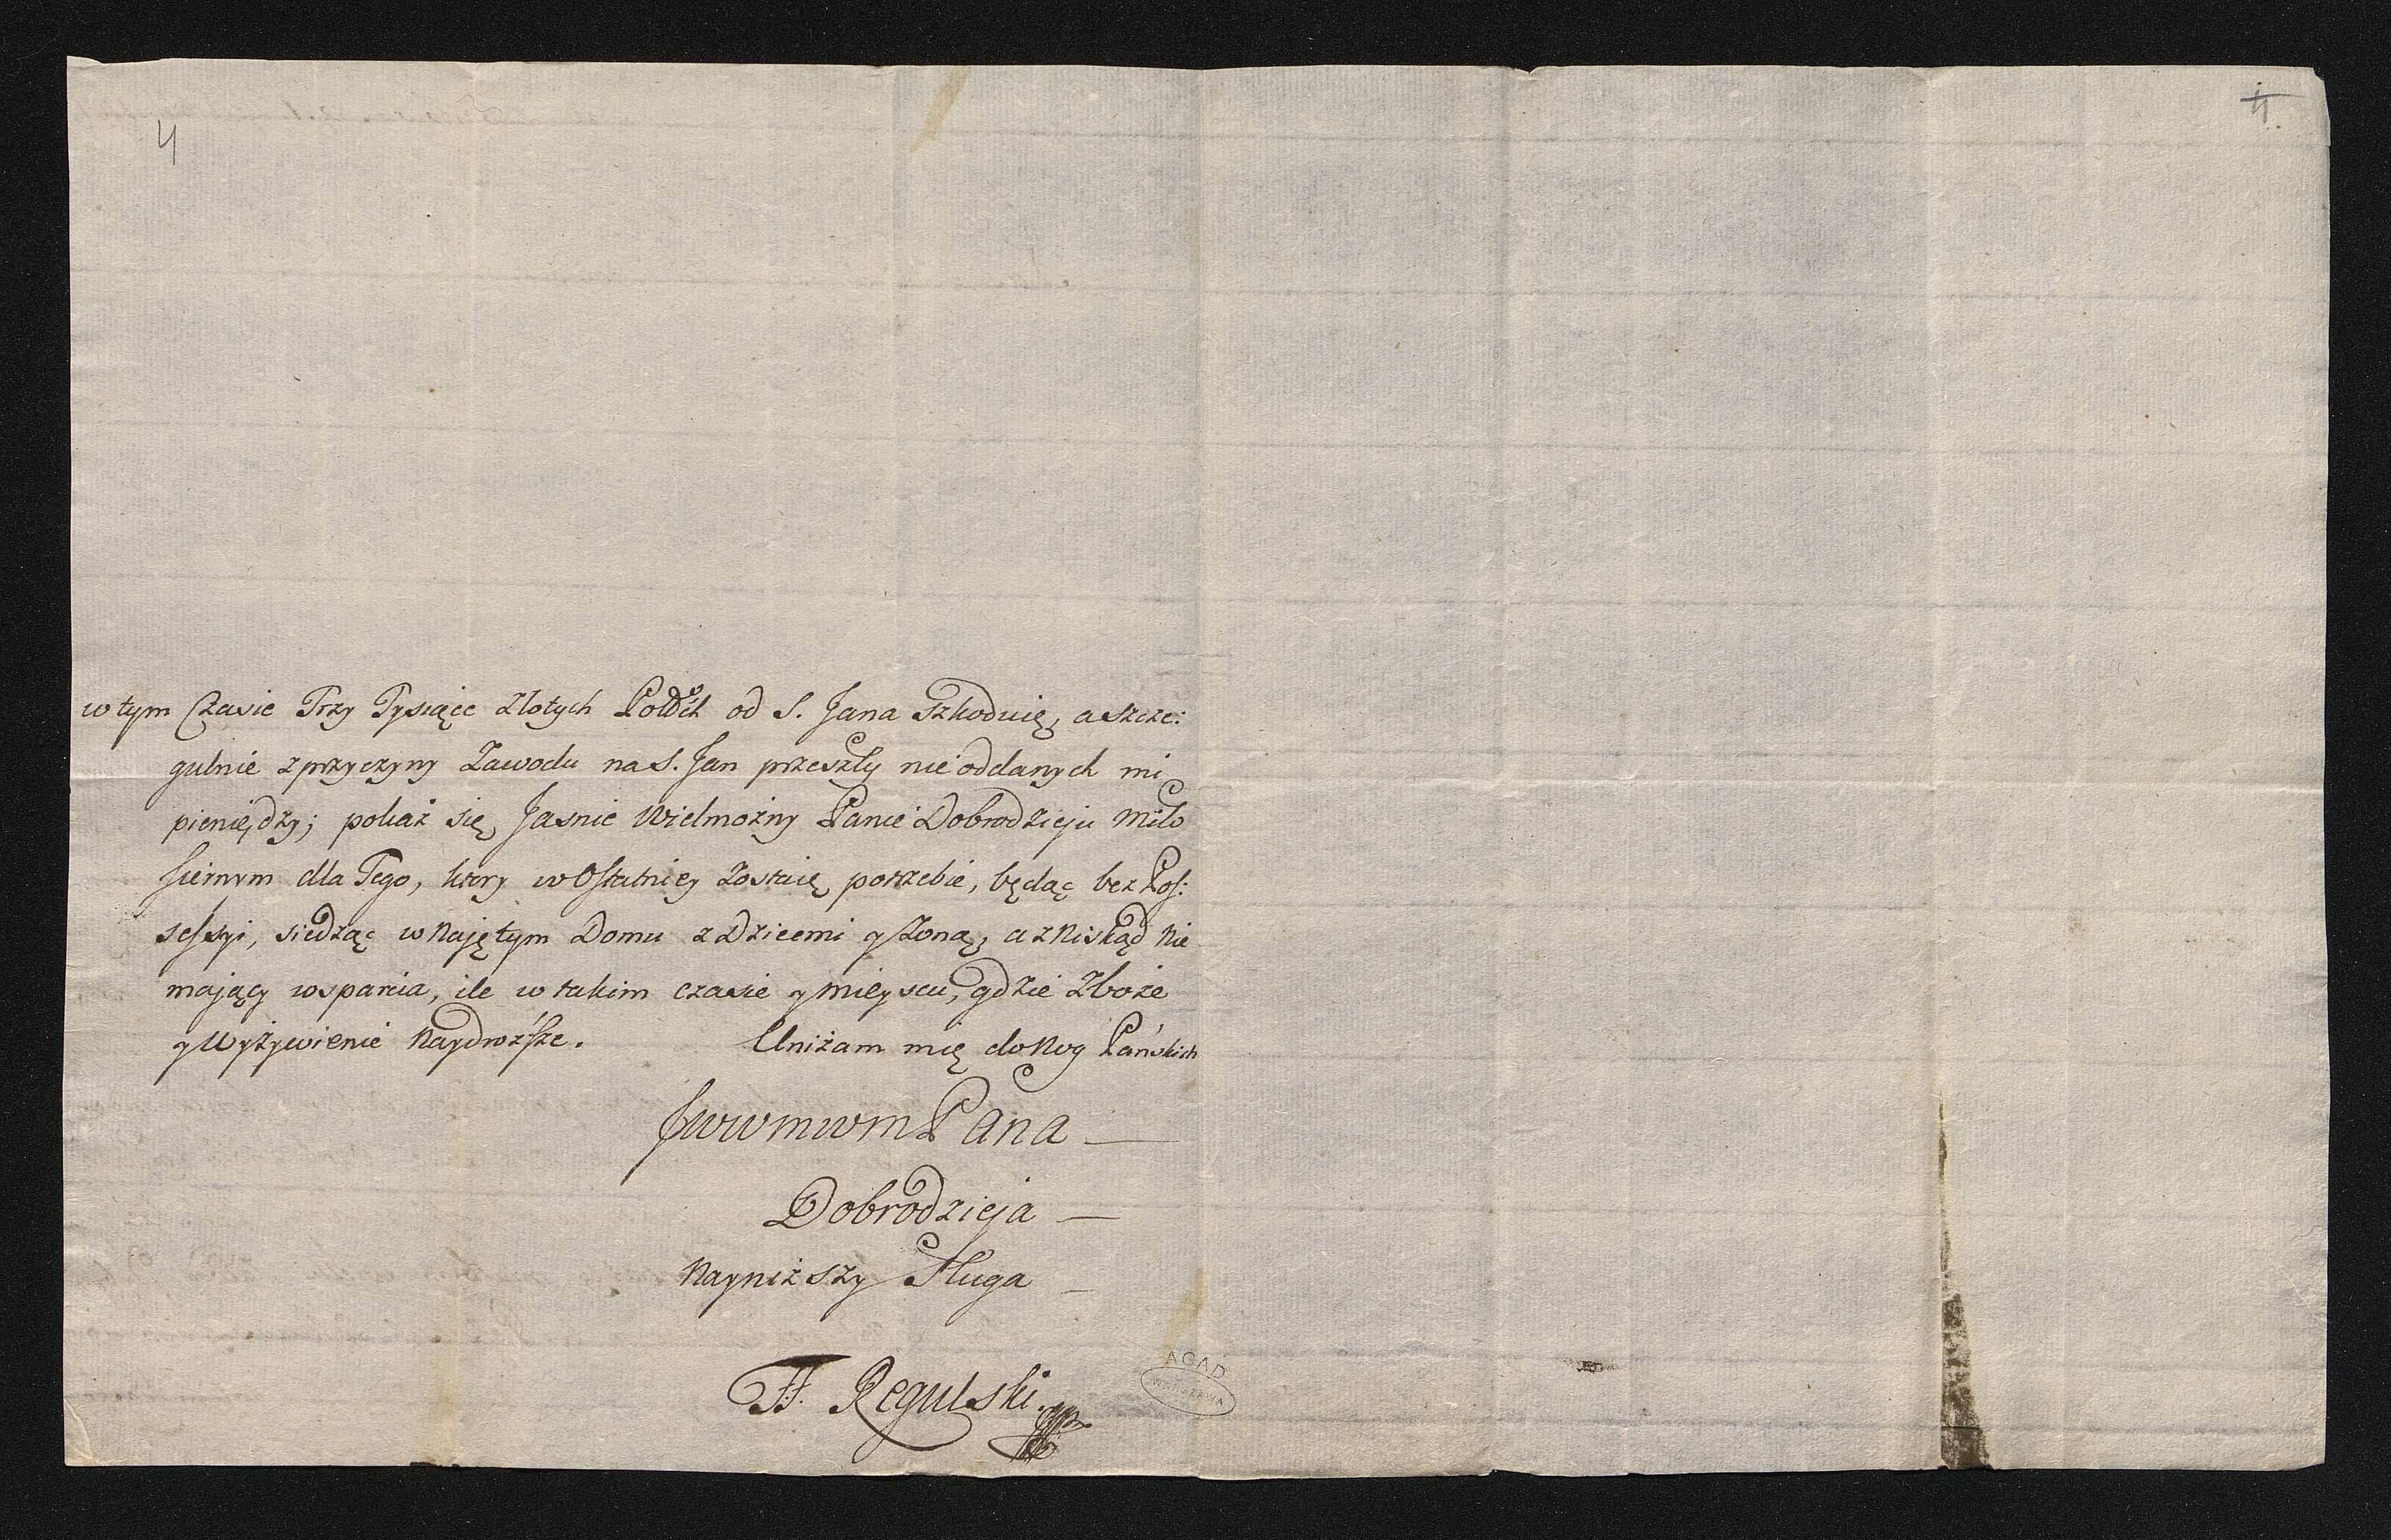 4
4
w tym Czasie Trzy Tysiące Złotych od S. Jana Szkoduię, a szcze:
gulnie z przyczyny Zawodu na S. Jan przeszły nie oddanych mi
pieniędzy; pokaż się Jasnie Wielmożny Panie Dobrodzieju Miło
siernym dla Tego, ktory w Ostatniey Zostaię potrzebie, będąc bez Pos:
sessyi, siedząc w Najętym Domu z Dziecmi y Zoną, a z Niskąd Nie
mający wsparcia, ile w takim czasie y mieyscu, gdzie Zboże
y Wyżywienie Naydroższe. Uniżam mię do Nog Pańskich
JWWMWM Pana
Dobrodzieja
Nayniższy Sługa
F. Regulski
AGAD
WARSZAWA